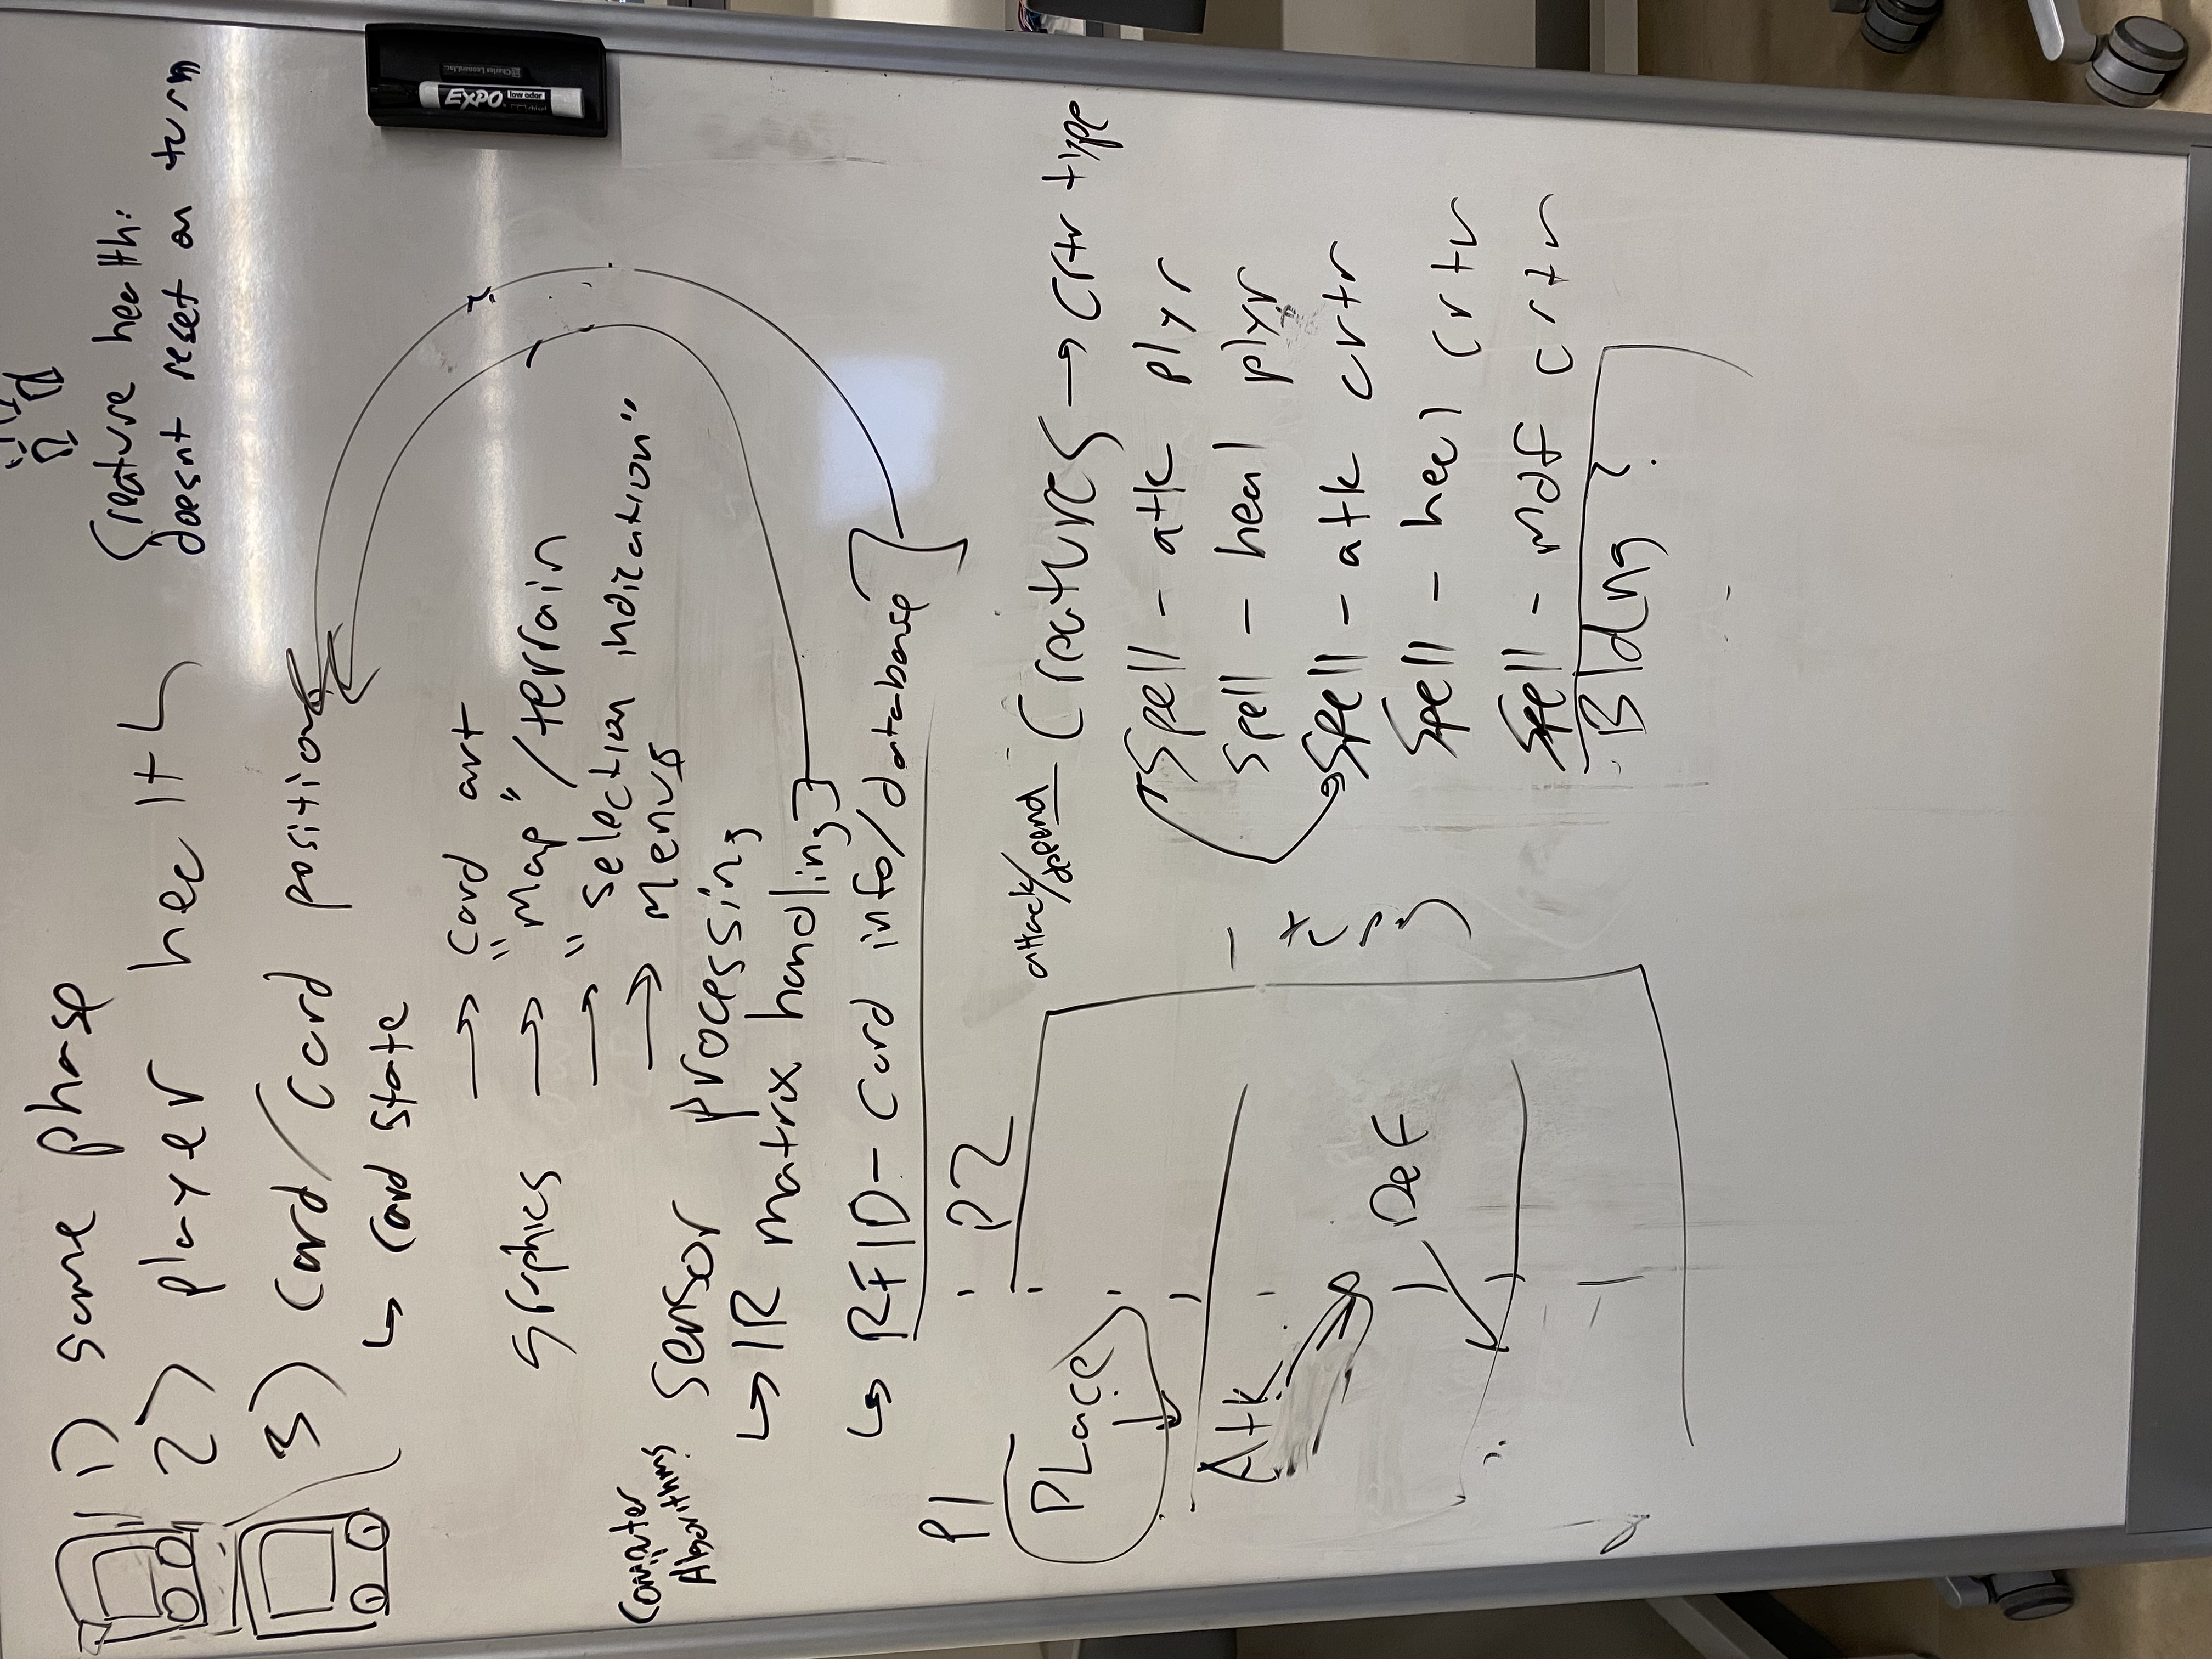 1) game phase
2) player health
3) Card/Card position
↳ Card state
Creature health:
doesnt reset on turn
graphics
→ card art
→ "map"/terrain
→ "selection indication"
→ Menus
Computer
Algorithms
Sensor processing
↳ IR matrix handling]
↳ RFID - Card info/database]
P1
P2
PLace
Atk
Def
attack/
defend
Creatures → Crtr type
Spell - atk plyr
Spell - heal plyr
Spell - atk crtr
Spell - heal crtr
Spell - mdf crtr
Bldng?
EXPO
low odor
Charles Leonard, Inc.